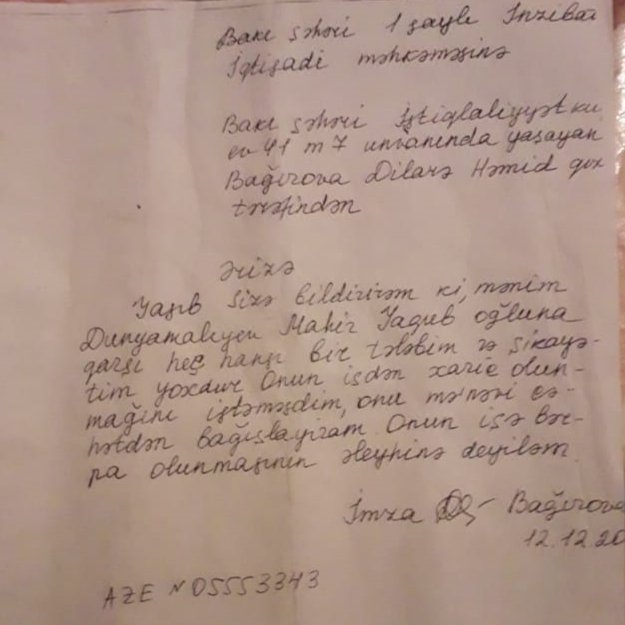 Bakı şəhəri 1 saylı İnzibati
İqtisadi məhkəməsinə
Bakı şəhəri İstiqlaliyyət kü
ev 41 m 7 ünvanında yaşayan
Bağırova Dilarə Həmid qızı
tərəfindən
Ərizə
Yazıb Sizə bildirirəm ki, mənim
Dunyamalıyev Mahir Yaqub oğluna
qarşı heç hansı bir tələbim və şikayə-
tim yoxdur. Onun işdən xaric olun-
mağını istəməzdim, onu mə'nəvi cə-
hətdən bağışlayıram. Onun işə bər-
pa olunmasının əleyhinə deyiləm.
İmza Bağırova
12.12.20
AZE N 05553343